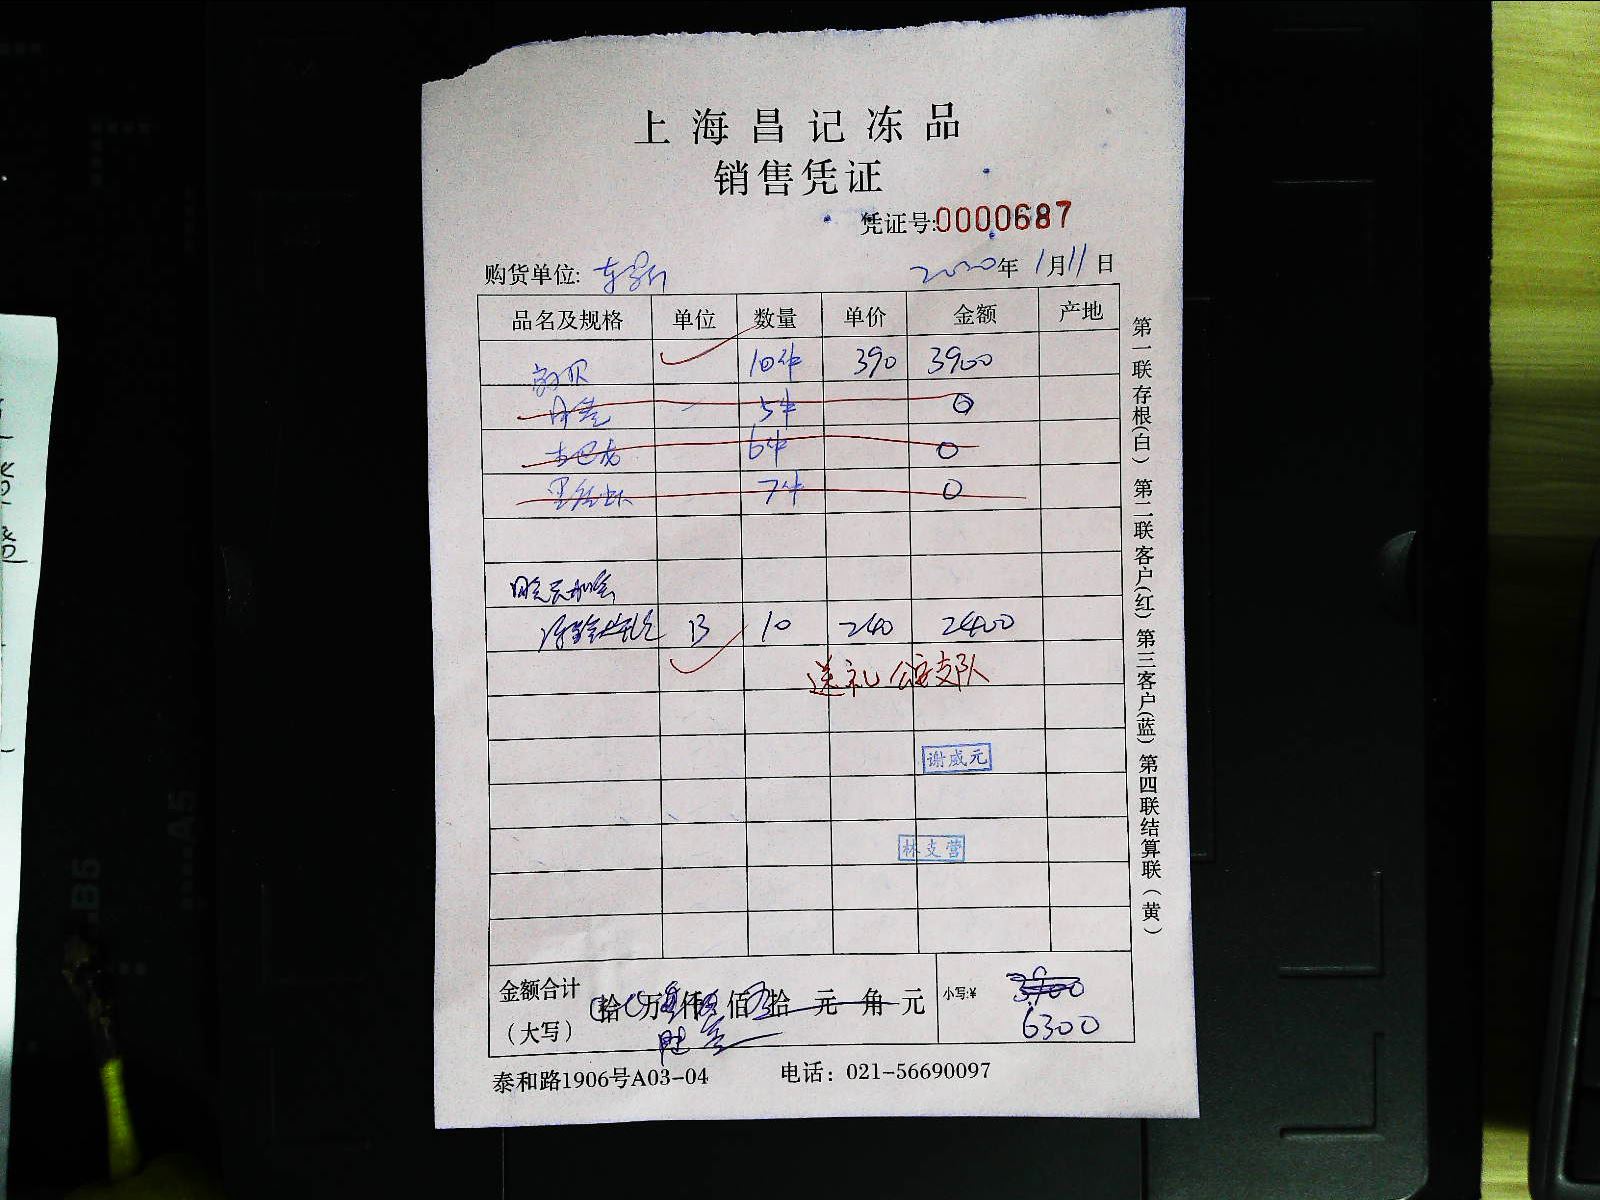 上海昌记冻品
销售凭证
凭证号:0000687
购货单位: 2020年1月11日
品名及规格 单位 数量 单价 金额 产地
10件 390 3900
5件 0
6件 0
7件 0
10 240 2400
送礼 公安支队
谢威元
林支营
金额合计 拾 万 仟 佰 拾 元 角 元 小写:¥ 3900
(大写) 6300
泰和路1906号A03-04 电话: 021-56690097
第一联存根(白) 第二联客户(红) 第三客户(蓝) 第四联结算联(黄)